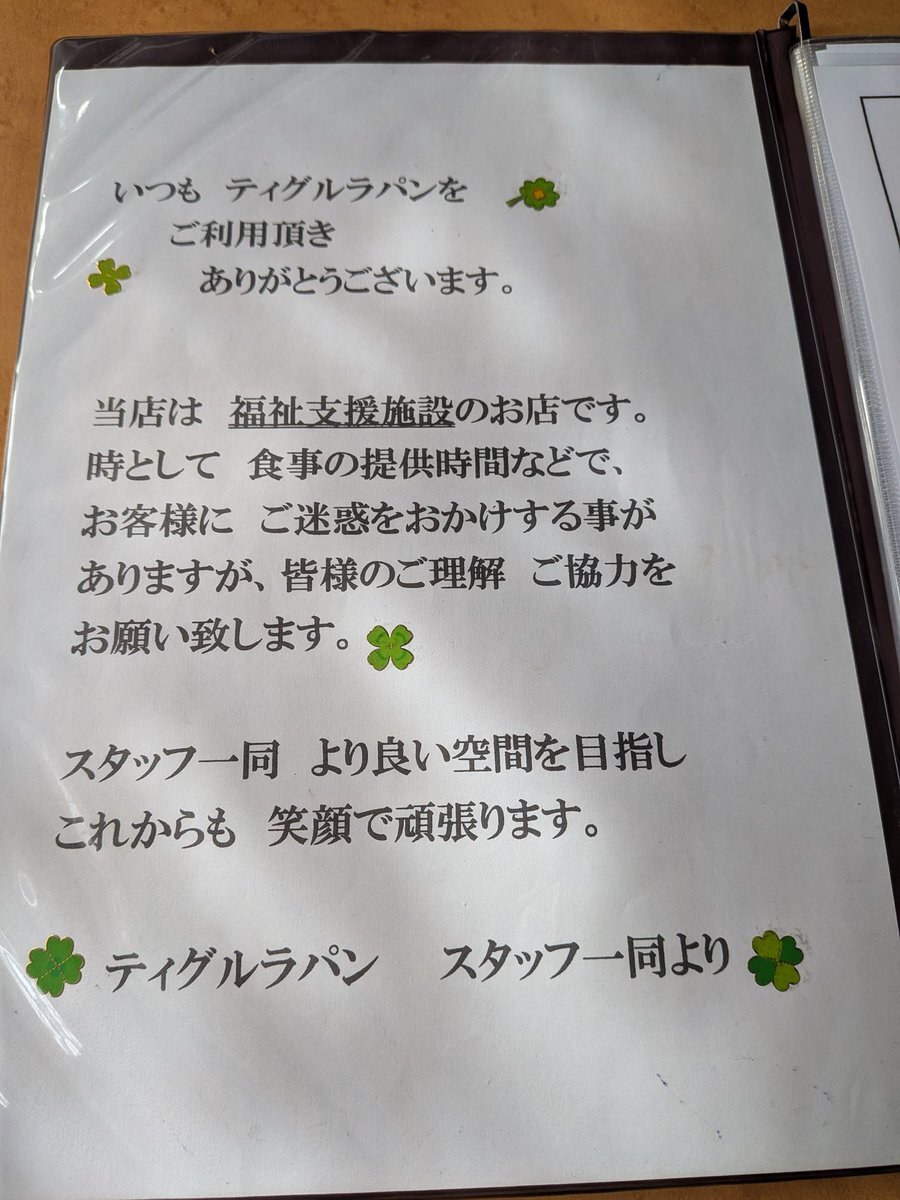 いつも ティグルラパンを
ご利用頂き
ありがとうございます。
当店は 福祉支援施設のお店です。
時として 食事の提供時間などで、
お客様に ご迷惑をおかけする事が
ありますが、皆様のご理解 ご協力を
お願い致します。
スタッフ一同 より良い空間を目指し
これからも 笑顔で頑張ります。
ティグルラパン スタッフ一同より